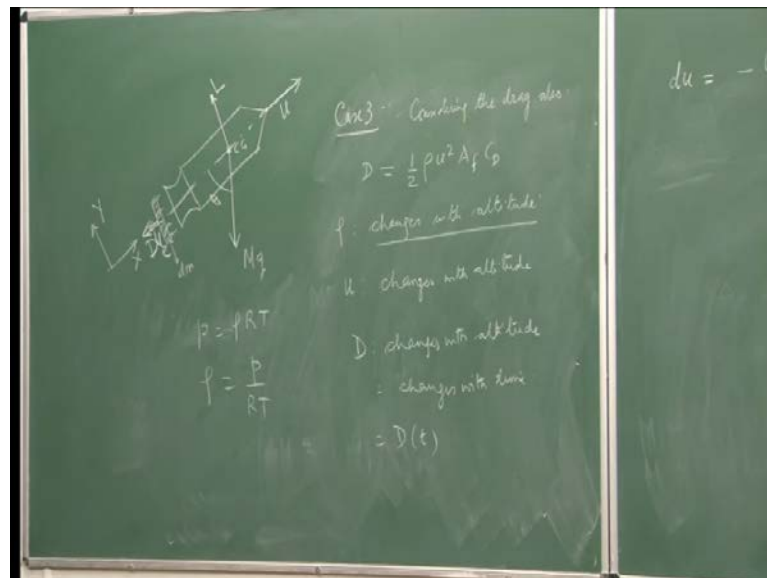 L
u
CG
Y
X
D
dm
θ
Mg
p = ρRT
ρ = p / RT
Case 3 :- Considering the drag also.
D = 1/2 ρu² A_f C_D
ρ : changes with altitude.
u : changes with altitude
D : changes with altitude
: changes with time
= D(t)
du = -